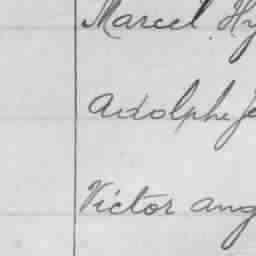 Marcel Hy
Adolphe Je
Victor ang